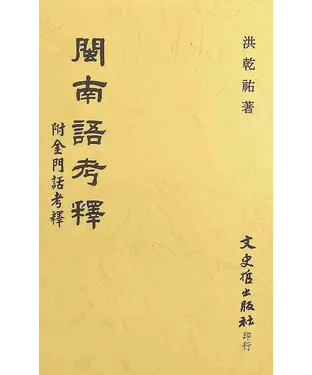 洪乾祐著
閩南語考釋
附金門話考釋
文史哲出版社印行